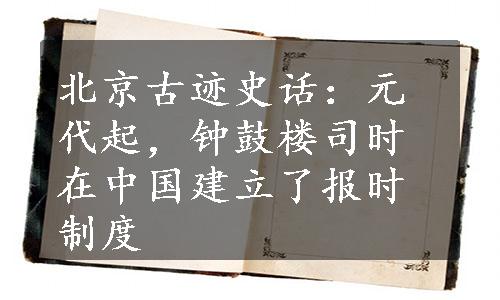 北京古迹史话：元
代起，钟鼓楼司时
在中国建立了报时
制度